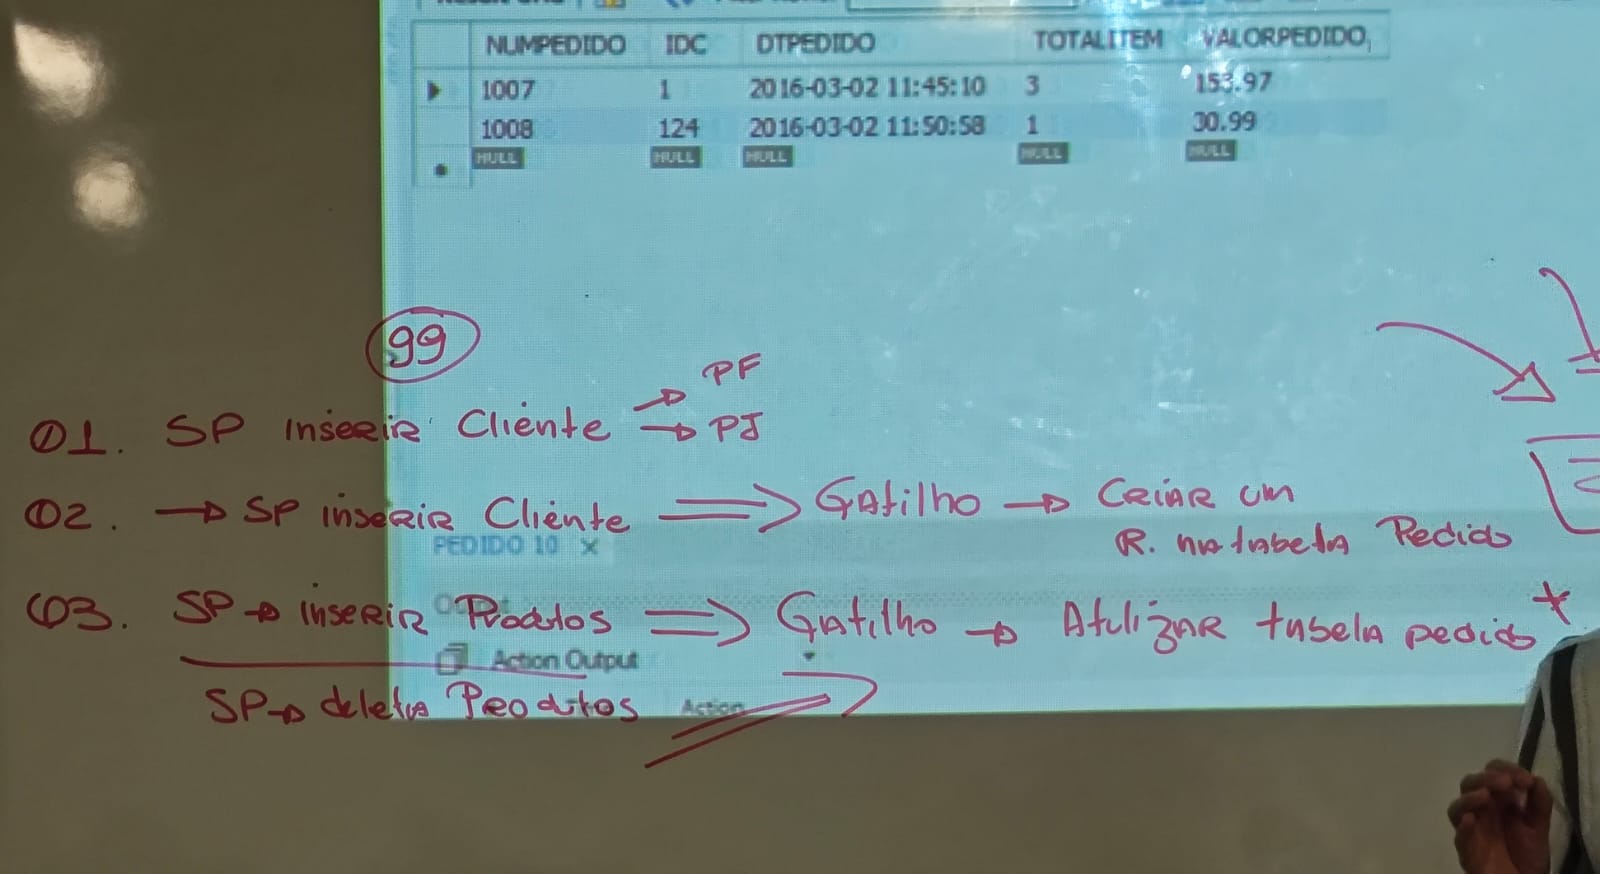 NUMPEDIDO IDC DTPEDIDO TOTALITEM VALORPEDIDO
1007 1 2016-03-02 11:45:10 3 153.97
1008 124 2016-03-02 11:50:58 1 30.99
NULL NULL NULL NULL NULL
99
PF
01. SP INSERIR Cliente → PJ
02. → SP INSERIR Cliente ⇒ GAtilho → CRIAR um
R. na tabela Pedido
PEDIDO 10 ×
03. SP → INSERIR Produtos ⇒ Gatilho → Atulizar tabela pedido *
Action Output
SP → deleta Produtos
Action